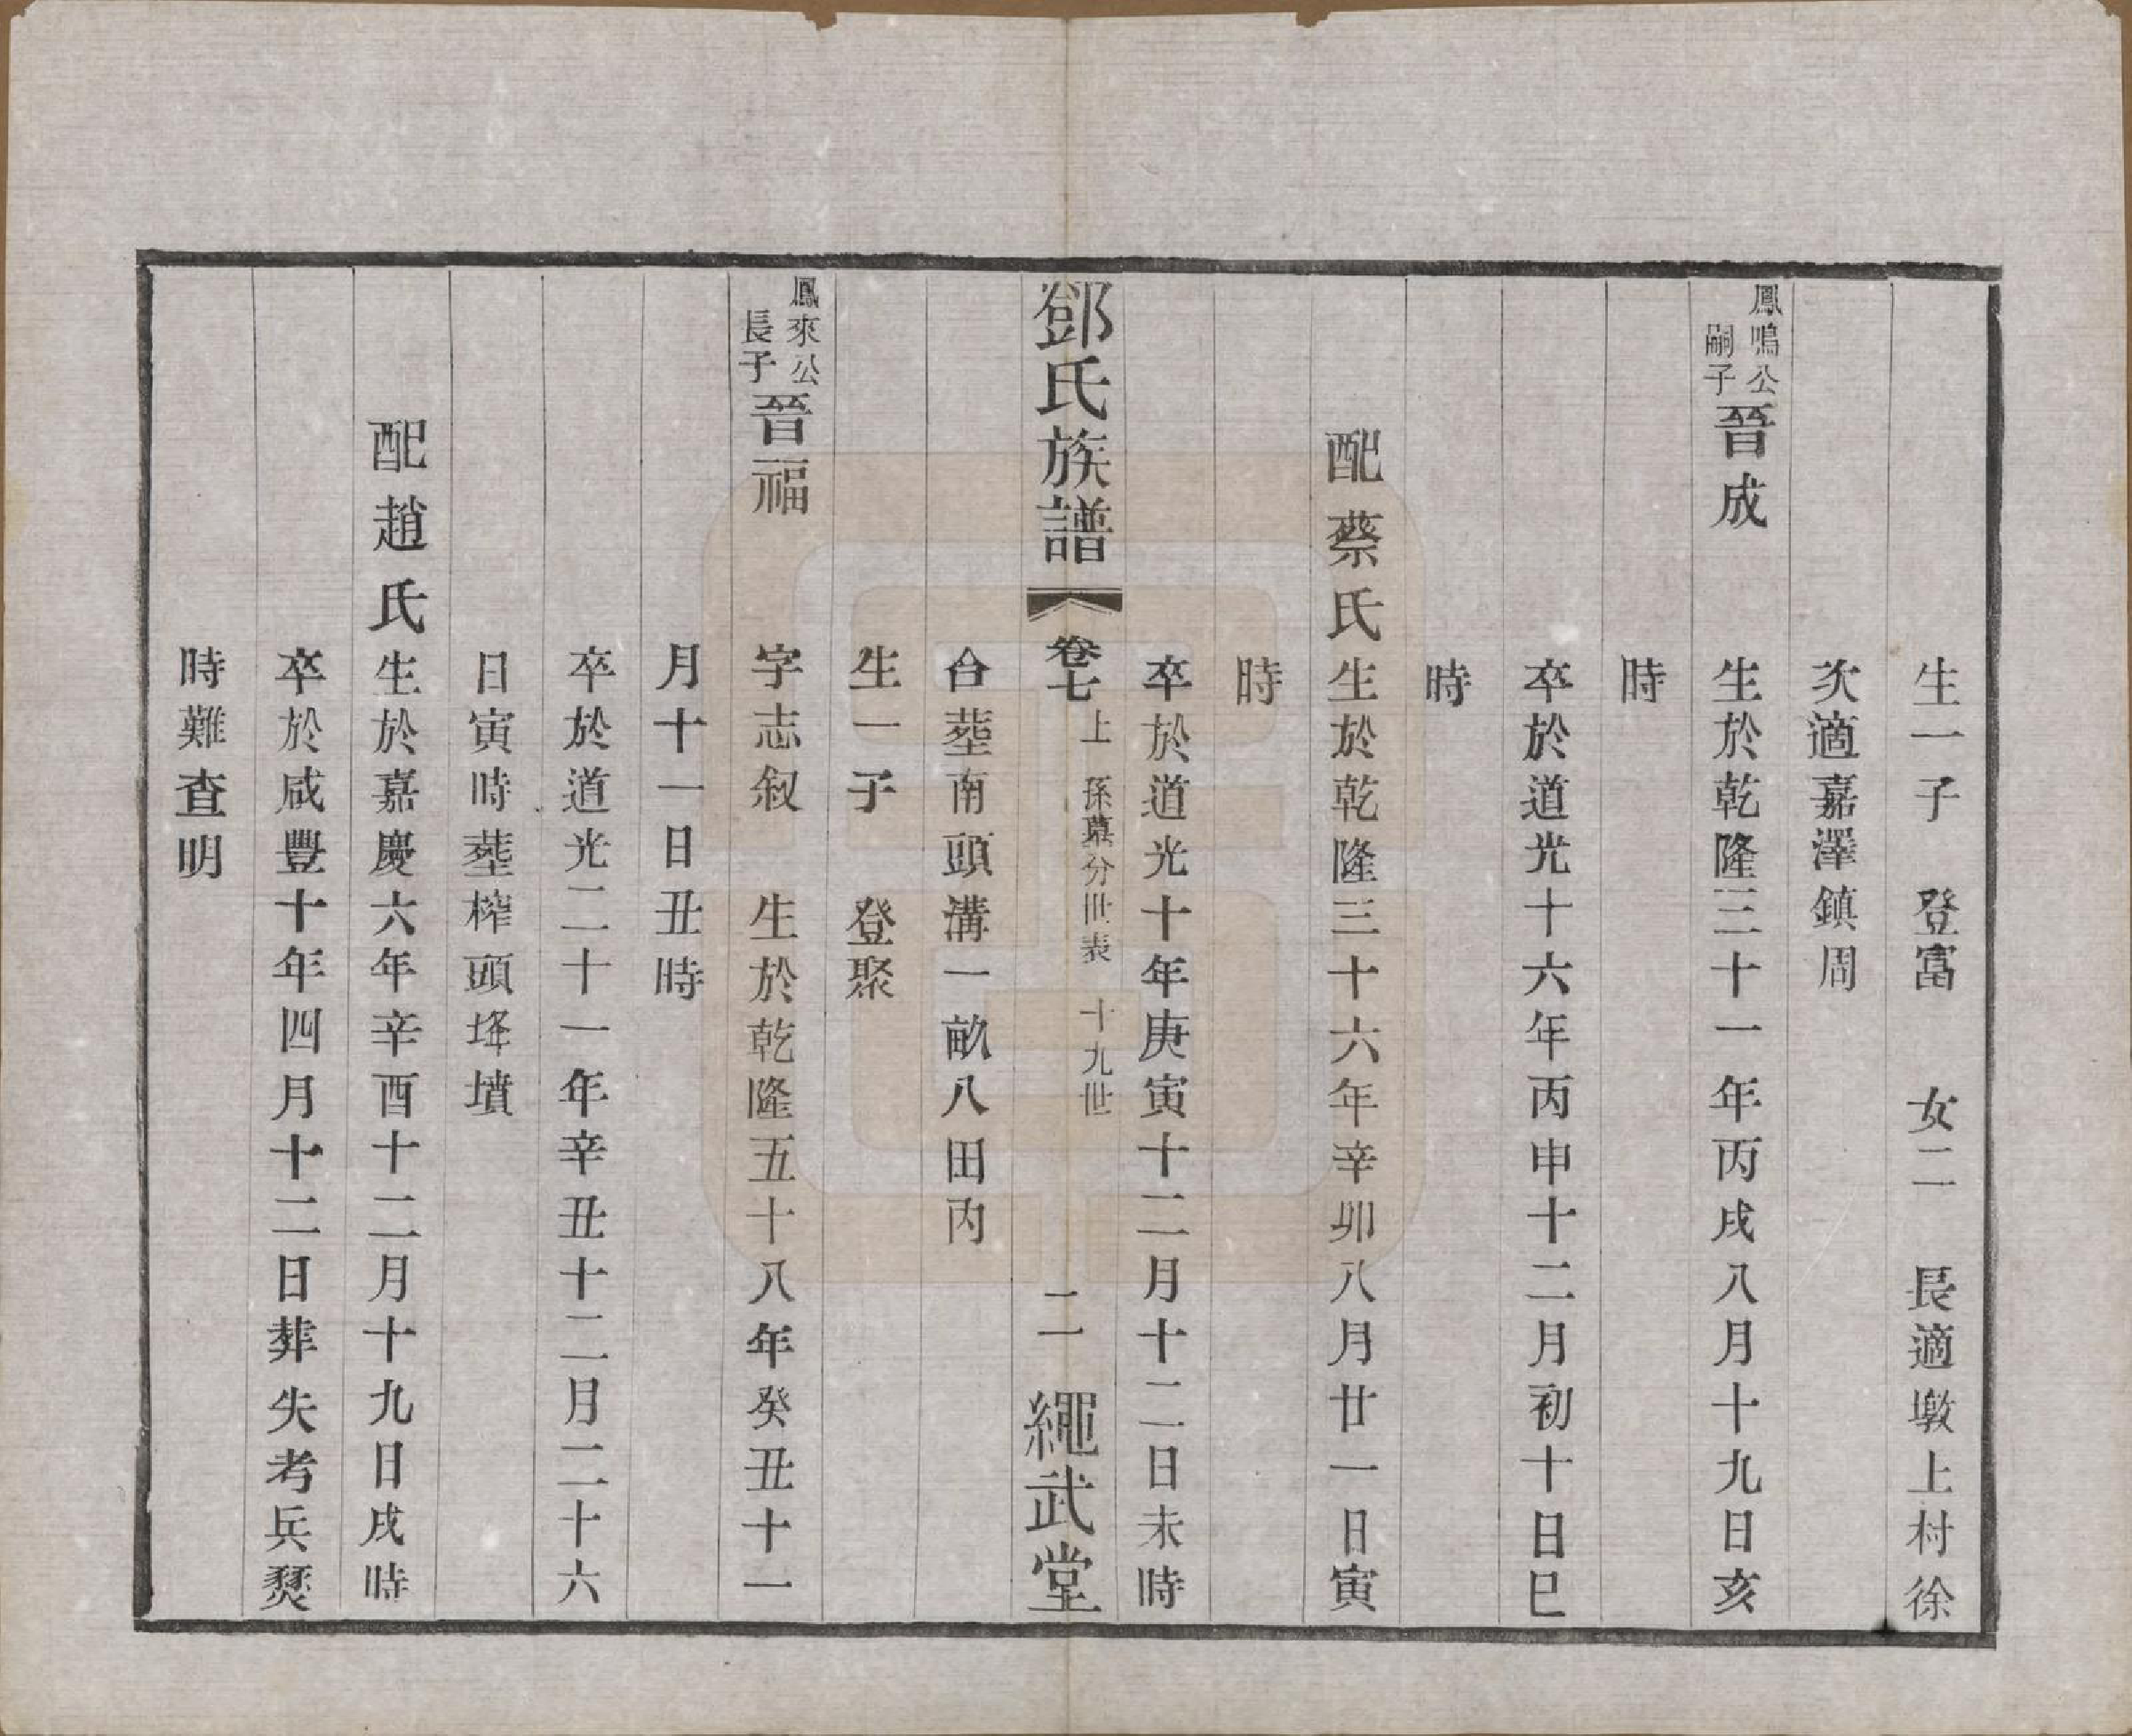 生一子　登富　女二　長適墩上村徐
次適嘉澤鎮周
鳳鳴公嗣子晉成　生於乾隆三十一年丙戌八月十九日亥
時
卒於道光十六年丙申十二月初十日巳
時
配蔡氏生於乾隆三十六年辛卯八月廿一日寅
時
卒於道光十年庚寅十二月十二日未時
鄧氏族譜　卷七上　孫墓分世表　十九世　二　繩武堂
合塟南頭溝一畝八田內
生一子　登聚
鳳來公長子晉福　字志叙　生於乾隆五十八年癸丑十一
月十一日丑時
卒於道光二十一年辛丑十二月二十六
日寅時塟榨頭墳
配趙氏生於嘉慶六年辛酉十二月十九日戌時
卒於咸豐十年四月十二日葬失考兵燹
時難查明